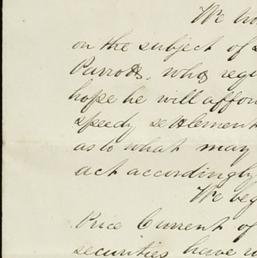 We
on the subject of
Parrott, who
hope he will
speedy settlement
as to what may
act accordingly
We beg
Price Current of
securities have